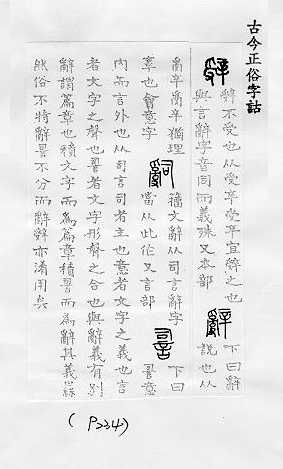 古今正俗字詁
辤
辤不受也从受辛受辛宜辤之也
與言辭字音同而義殊又本部
辭
下曰辭
說也从
𤔔辛𤔔辛猶理
辜也會意字
嗣
籒文辭从司言辭字
當从此作又言部
䛐
下曰
䛐意
內而言外也从司言司者主也意者文字之義也言
者文字之聲也䛐者文字形聲之合也與辭義有別
辭謂篇章也積文字而為篇章積䛐而為辭其義㬎
然俗不將辭䛐不分而辭辤亦淆用矣
( P334)